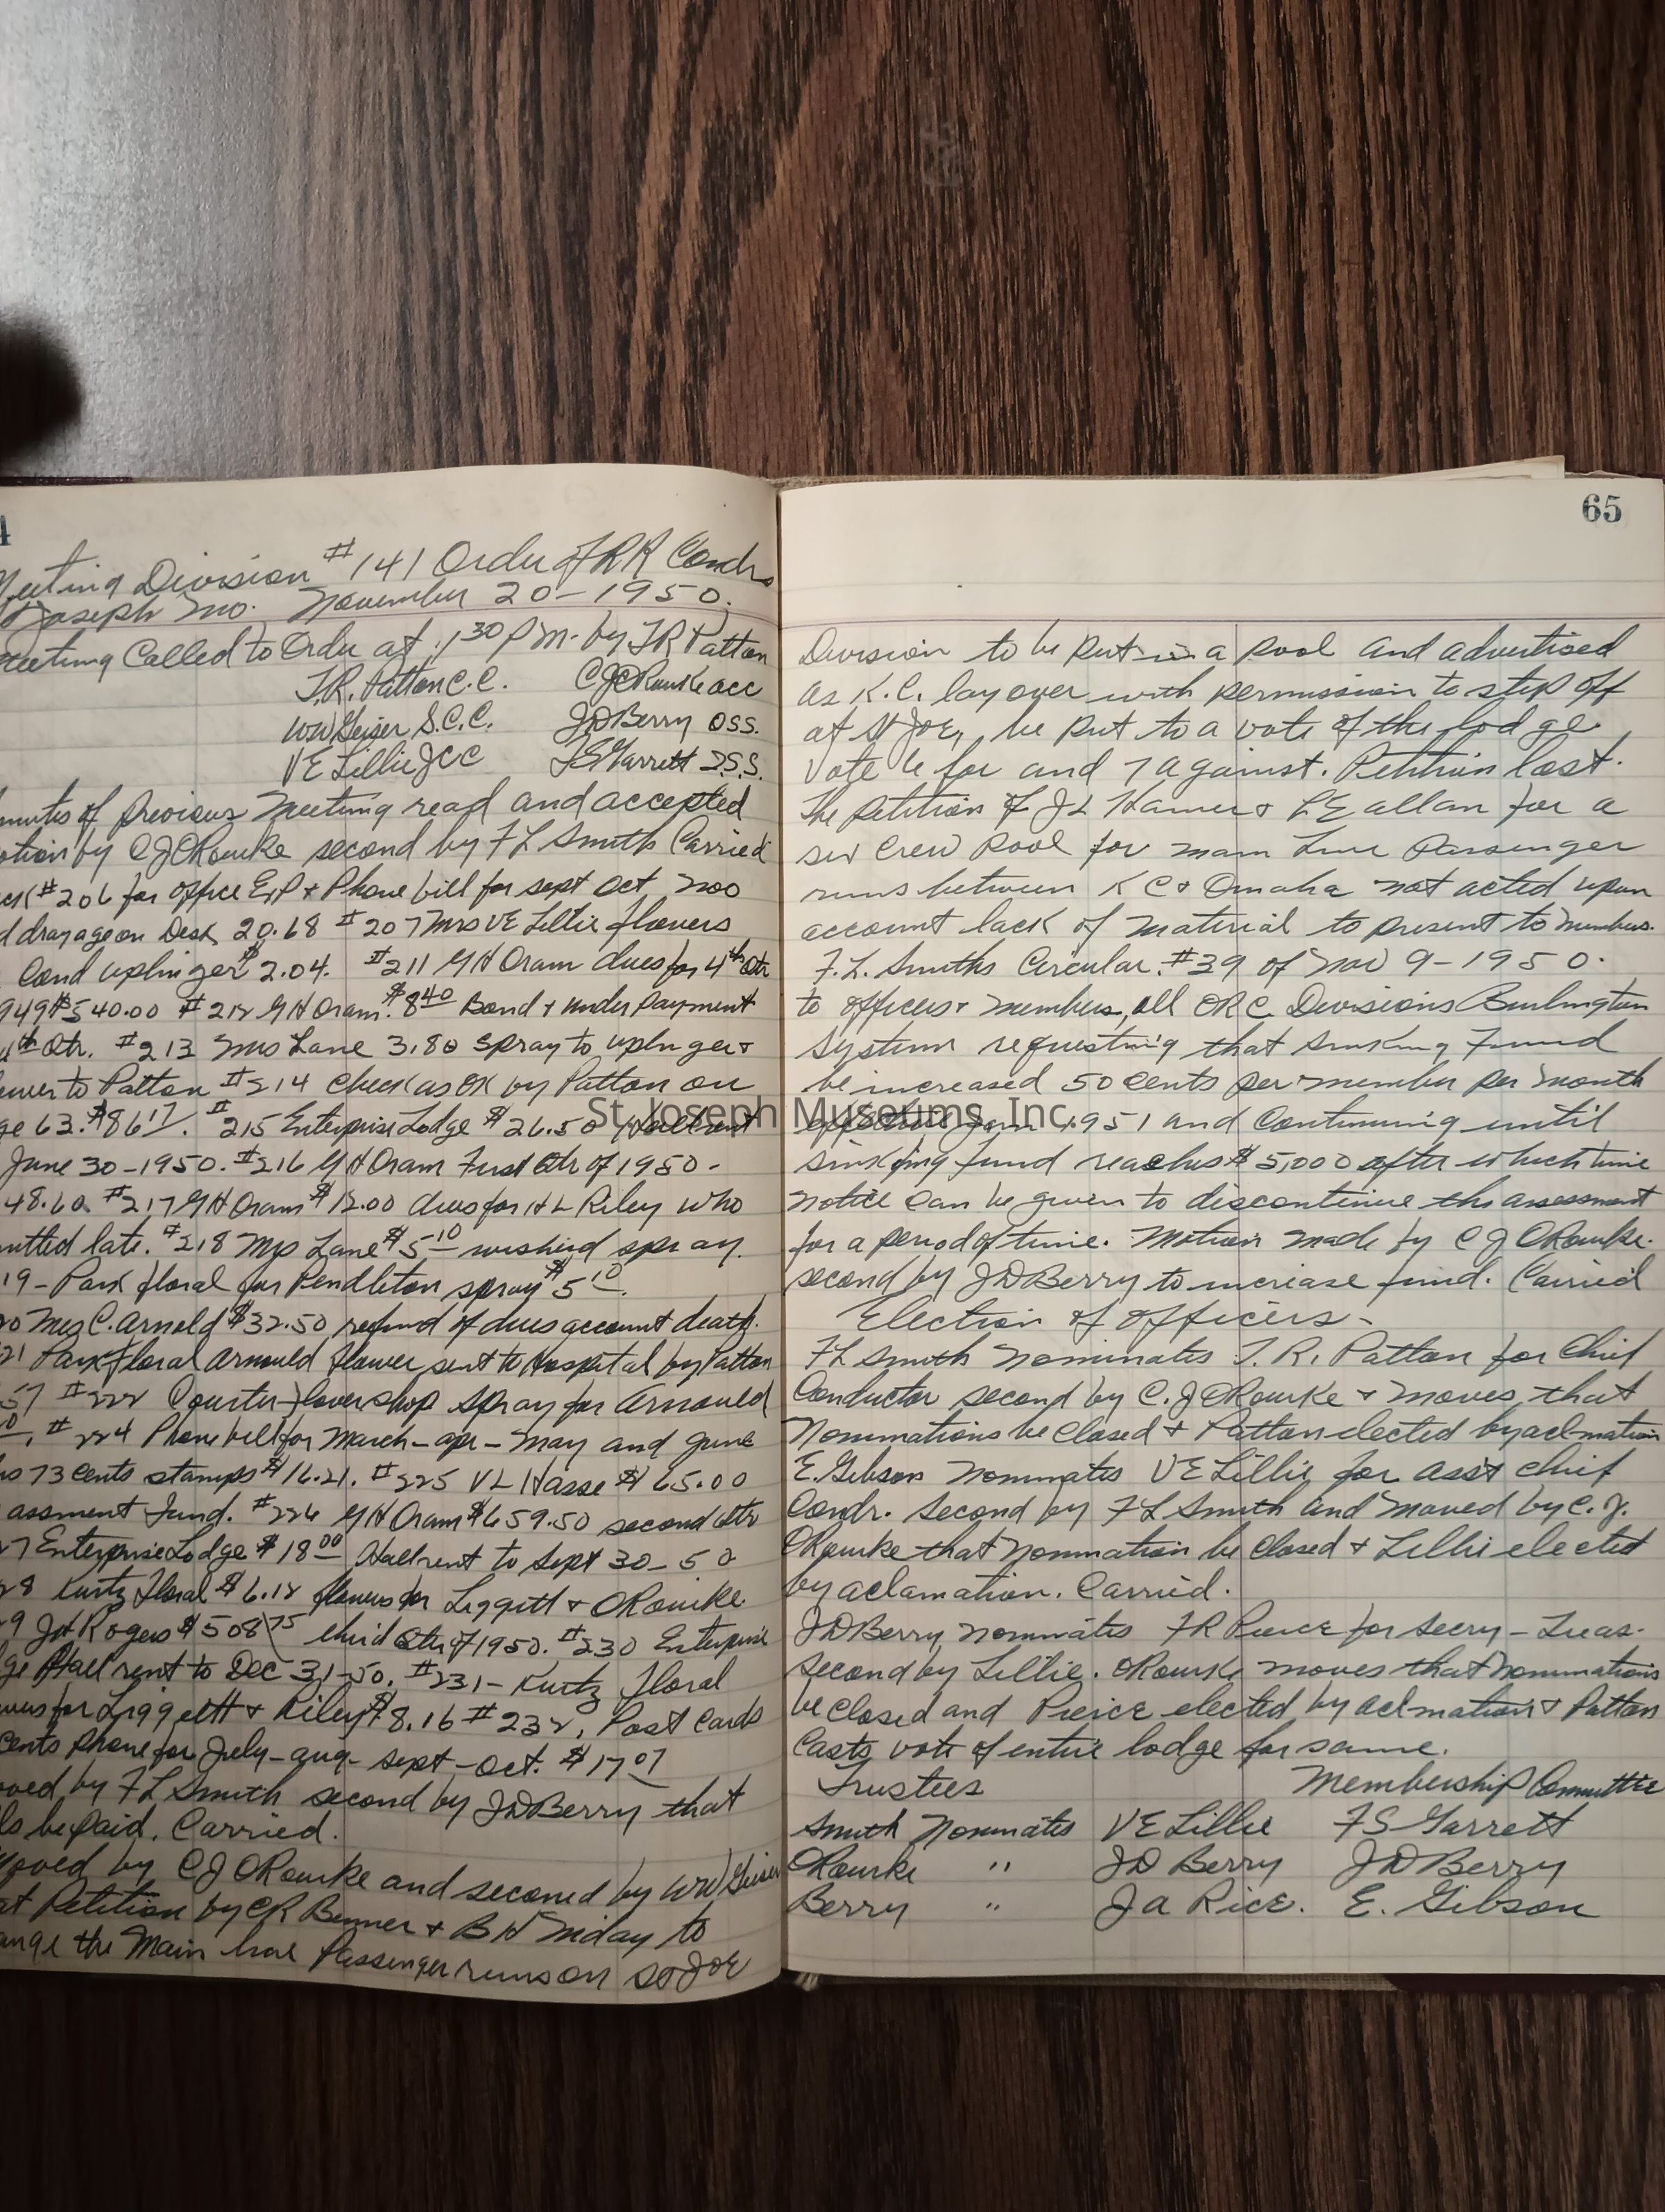 4
Meeting Division #141 Order of RR Condrs
Joseph Mo. November 20-1950.
Meeting Called to Order at 1 30 P M. by T.R Patton
T.R. Patton C.C. C J ORourke acc
WW Geiser S.C.C. J D Berry OSS.
V E Lillie J C C F S Garrett I.S.S.
minutes of Previous Meeting read and accepted
otion by C J ORourke second by F L Smith Carried
eck #206 for office Exp & Phone bill for sept Oct Nov
d drayage on Desk 20.68 #207 Mrs V E Lillie flowers
Cond uplinger $2.04. #211 G H Oram dues for 4th Qtr
949 $540.00 #212 G H Oram. $8 40 Bond & under Payment
4th Qtr. #213 Mrs Lane 3.80 spray to uplinger &
ower to Patton #214 Check as OK by Patton on
ge 63. $86 17. #215 Enterprise Lodge $26.50 Hall rent
June 30-1950. #216 G H Oram First Qtr of 1950 -
48.60. #217 G H Oram $12.00 dues for H L Riley who
mitted late. #218 Mrs Lane $5 10 spray.
19 - Park floral for Pendleton spray $5 10.
20 Mrs C. Arnold $32.50 refund of dues account death.
21 Park floral Arnould flower sent to Hospital by Patton
57 #222 Courter flower shop spray for Arnould
10, #224 Phone bill for March - apr - May and June
73 cents stamps $16.21. #225 V L Hasse $65.00
assment Fund. #226 G H Oram $659.50 second Qtr
27 Enterprise Lodge $18 00 Hall rent to Sept 30-50
28 Kurtz floral $6.12 flowers for Liggett & ORourke
29 J H Rogers $508 75 third Qtr of 1950. #230 Enterprise
ge Hall rent to Dec 31-50. #231 - Kurtz floral
wers for Liggett & Riley $8.16 #232, Post Cards
cents phone for July - aug - sept - Oct. $17 07
oved by F L Smith second by J D Berry that
ls be paid. Carried.
oved by C J ORourke and seconed by W W Geiser
at Petition by C R Benner & B H Niday to
ange the Main line Passenger runs on St Joe
65
Division to be put in a pool and advertised
as K.C. layover with permission to step off
at St Joe, be put to a vote of the lodge
Vote 6 for and 7 against. Petition lost.
The Petition of J L Hamer & L E allan for a
six Crew Pool for main Line Passenger
runs between K C & Omaha not acted upon
account lack of material to present to members.
F. L. Smiths Circular #39 of Nov 9-1950.
to officers & members, all ORC Divisions Burlington
System requesting that sinking Fund
be increased 50 cents per member per month
effective Jan 1951 and Continuing until
sinking fund reaches $5,000 after which time
notice can be given to discontinue the assessment
for a period of time. Motion made by C J ORourke.
second by J D Berry to increase fund. Carried
Election of officers -
F L Smith Nominates T. R. Patton for Chief
Conductor second by C. J ORourke & moves that
Nominations be Closed & Patton elected by aclmation
E. Gibson Nominates V E Lillie for asst chief
Condr. second by F L Smith and moved by C. J.
ORourke that nomination be closed & Lillie elected
by aclamation. Carried.
J D Berry, nominates F R Pierce for Secry - Treas.
Second by Lillie. ORourke moves that nominations
be closed and Pierce elected by aclmation & Patton
Casts vote of entire lodge for same.
Trustees Membership Committie
Smith Nominates V E Lillie F S Garrett
ORourke " J D Berry J D Berry
Berry " J a Rice. E. Gibson
St. Joseph Museums, Inc.